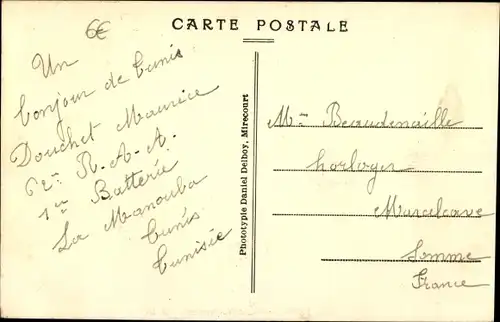 6€
CARTE POSTALE
Un
bonjour de Tunis
Douchet Maurice
62e R.A.A.
1re Batterie
La Manouba
Tunis
Tunisie
Phototypie Daniel Delboy, Mirecourt
Mr Beaudenaille
horloger
Marcelcave
Somme
France